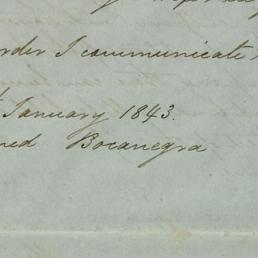 order I communicate
January 1843.
Bocanegra